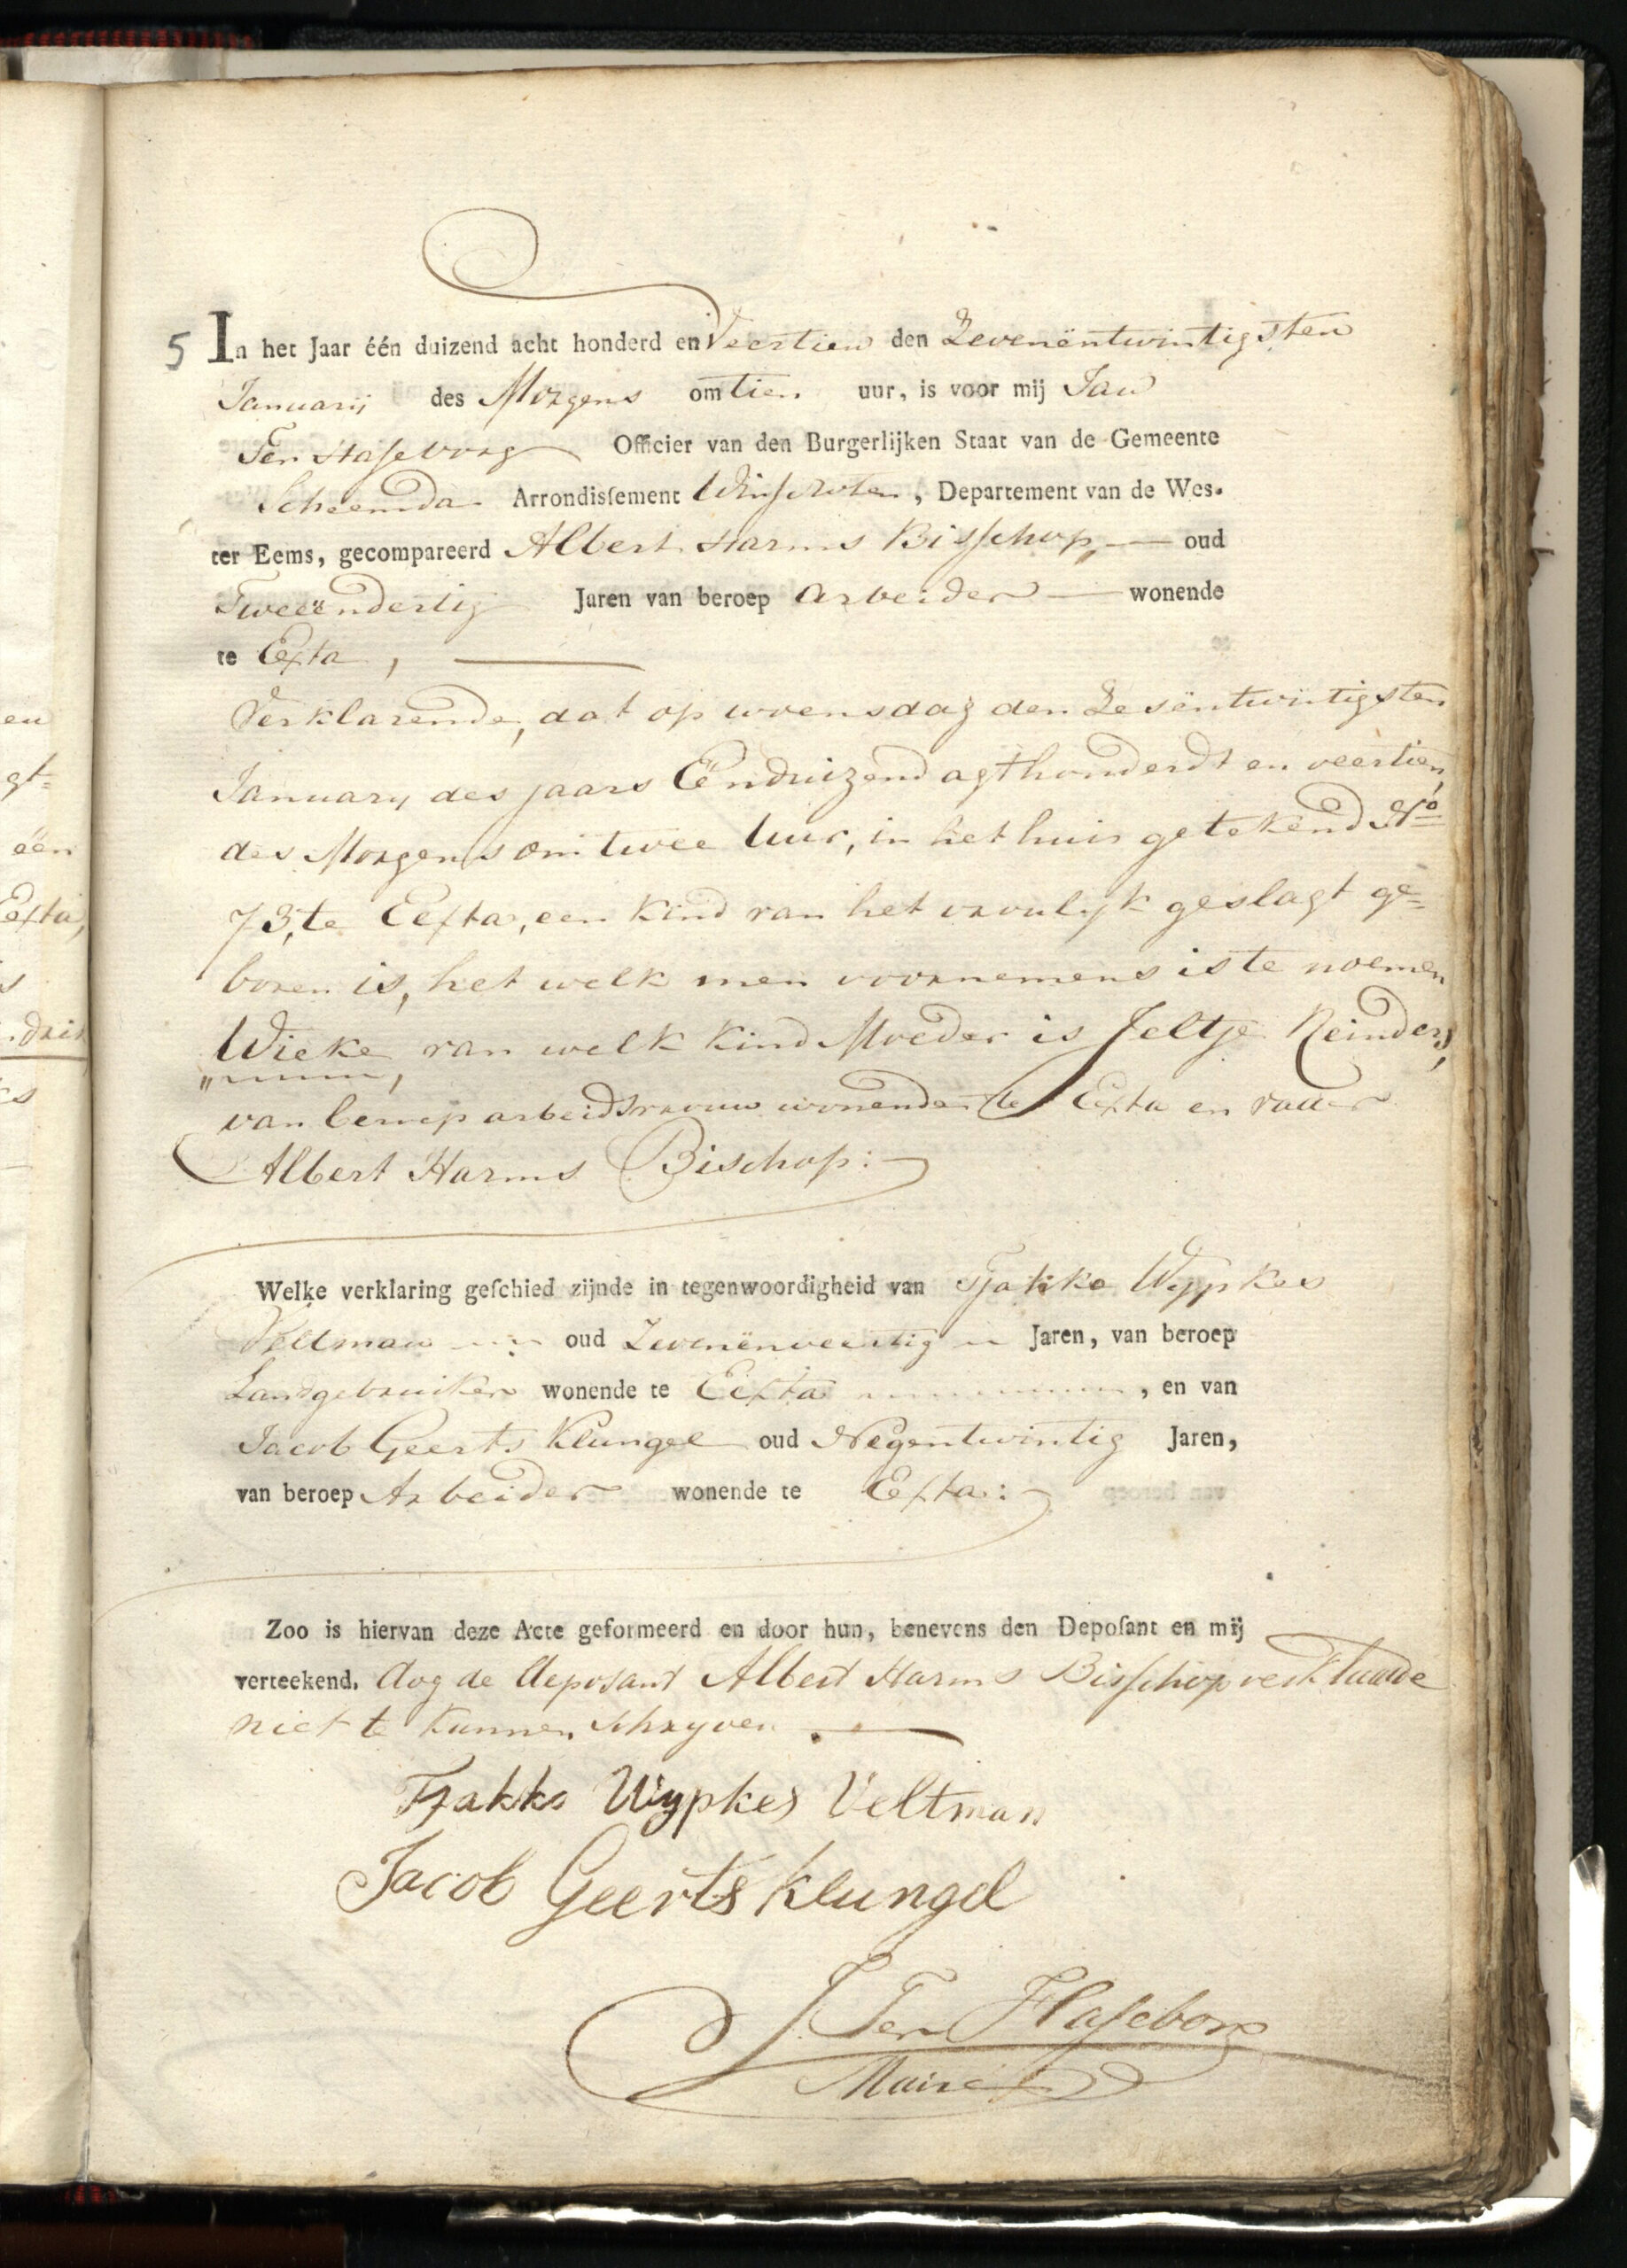 5 In het Jaar één duizend acht honderd en Veertien den Zevenëntwintigsten
Januarij des Morgens om tien uur, is voor mij Jan
Ter Haseborg Officier van den Burgerlijken Staat van de Gemeente
Scheemda Arrondisſement Winschoten, Departement van de Wes-
ter Eems, gecompareerd Albert Harms Bisschop, — oud
Tweeëndertig Jaren van beroep Arbeider — wonende
te Eexta, —
Verklarende, dat op woensdag den Zesëntwintigsten
January des jaars Eenduizend agthonderdt en veertien,
des Morgens om twee Uur, in het huis getekend No
73, te Eexta, een Kind van het vroulyk geslagt ge=
boren is, het welk men voornemens is te noemen
Wieke, van welk Kind Moeder is Jeltje Reinders,
van beroep arbeidsvrouw wonende te Eexta en vader
Albert Harms Bischop:
Welke verklaring geſchied zijnde in tegenwoordigheid van Tjakko Wypkes
Veltman oud Zevenënveertig Jaren, van beroep
Landgebruiker wonende te Eexta, en van
Jacob Geerts Klungel oud Negentwintig Jaren,
van beroep Arbeider wonende te Eexta:
Zoo is hiervan deze Acte geformeerd en door hun, benevens den Depoſant en mij
verteekend. dog de deposant Albert Harms Bisschop verklaarde
niet te kunnen schryven. —
Tjakko Wypkes Veltman
Jacob Geerts Klungel
J. Ter Haseborg
Maire
en
gt=
één
Eexta,
s